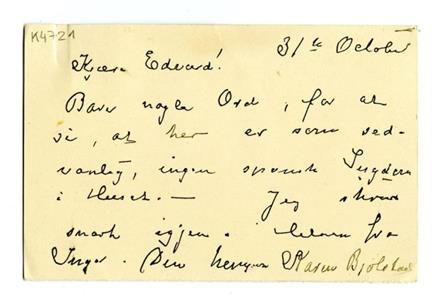 K4721
31te October
Kjære Edvard!
Bare nogle Ord, for at
si, at her er som sed-
vanlig, ingen spansk
i Huset. — Jeg skriver
snart igjen. Hilsen fra
Inger. Din hengivne Karen Bjølstad